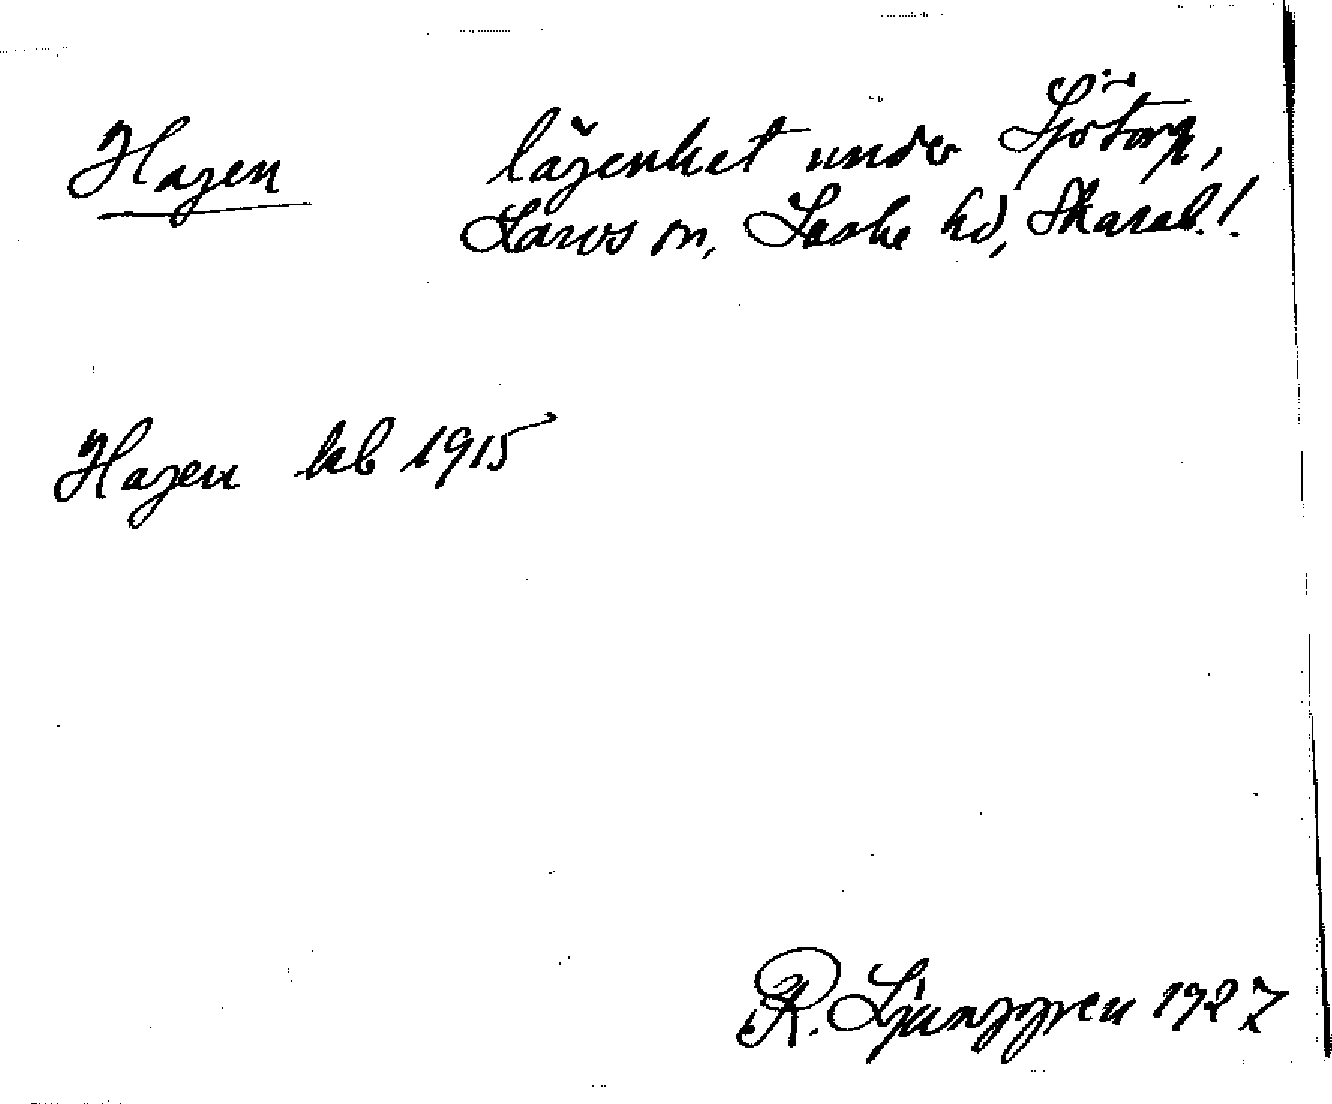 Hagen lägenhet under Sjötorp,
Larvs sn, Laske hd, Skarab. l.
Hagen kb 1915
R. Ljunggren 1927